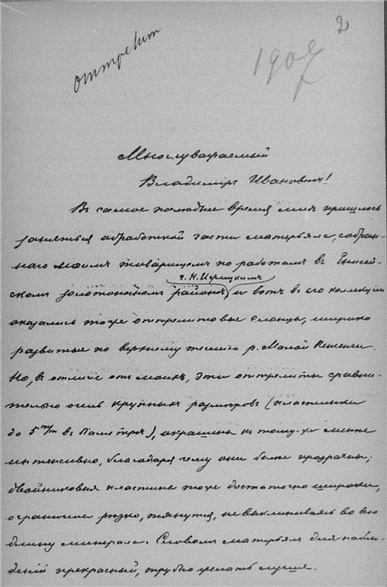 2
оттрелит
1907
Многоуважаемый
Владимiръ Ивановичъ!
Въ самое последнее время мнѣ пришлось
заняться обработкой части матерьяла, собран-
наго моимъ товарищемъ по работамъ въ Енисей-
г. Н.
скомъ золотоносномъ районѣ и вотъ въ его коллекцiи
оказались тоже оттрелитовые сланцы, широко
развитые по верхнему теченiю р. Малой Пенченги.
Но, въ отличiе отъ моихъ, эти оттрелиты сравни-
тельно очень крупныхъ размѣровъ (пластинки
до 5 m/m въ дiаметрѣ), окрашены къ тому-же менѣе
интенсивно, благодаря чему они более прозрачны;
двойниковыя пластинки тоже достаточно широки,
ограничены рѣзко, тянутся, не выклиниваясь во всю
длину минерала. Словомъ матерьялъ для наблю-
денiй прекрасный, трудно желать лучше.